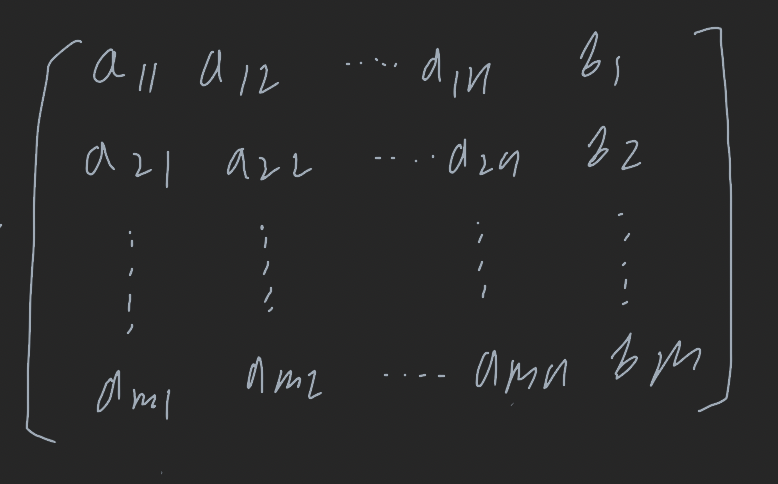 a11 a12 ..... a1n b1
a21 a22 ..... a2n b2
⋮ ⋮ ⋮ ⋮
am1 am2 ..... amn bm